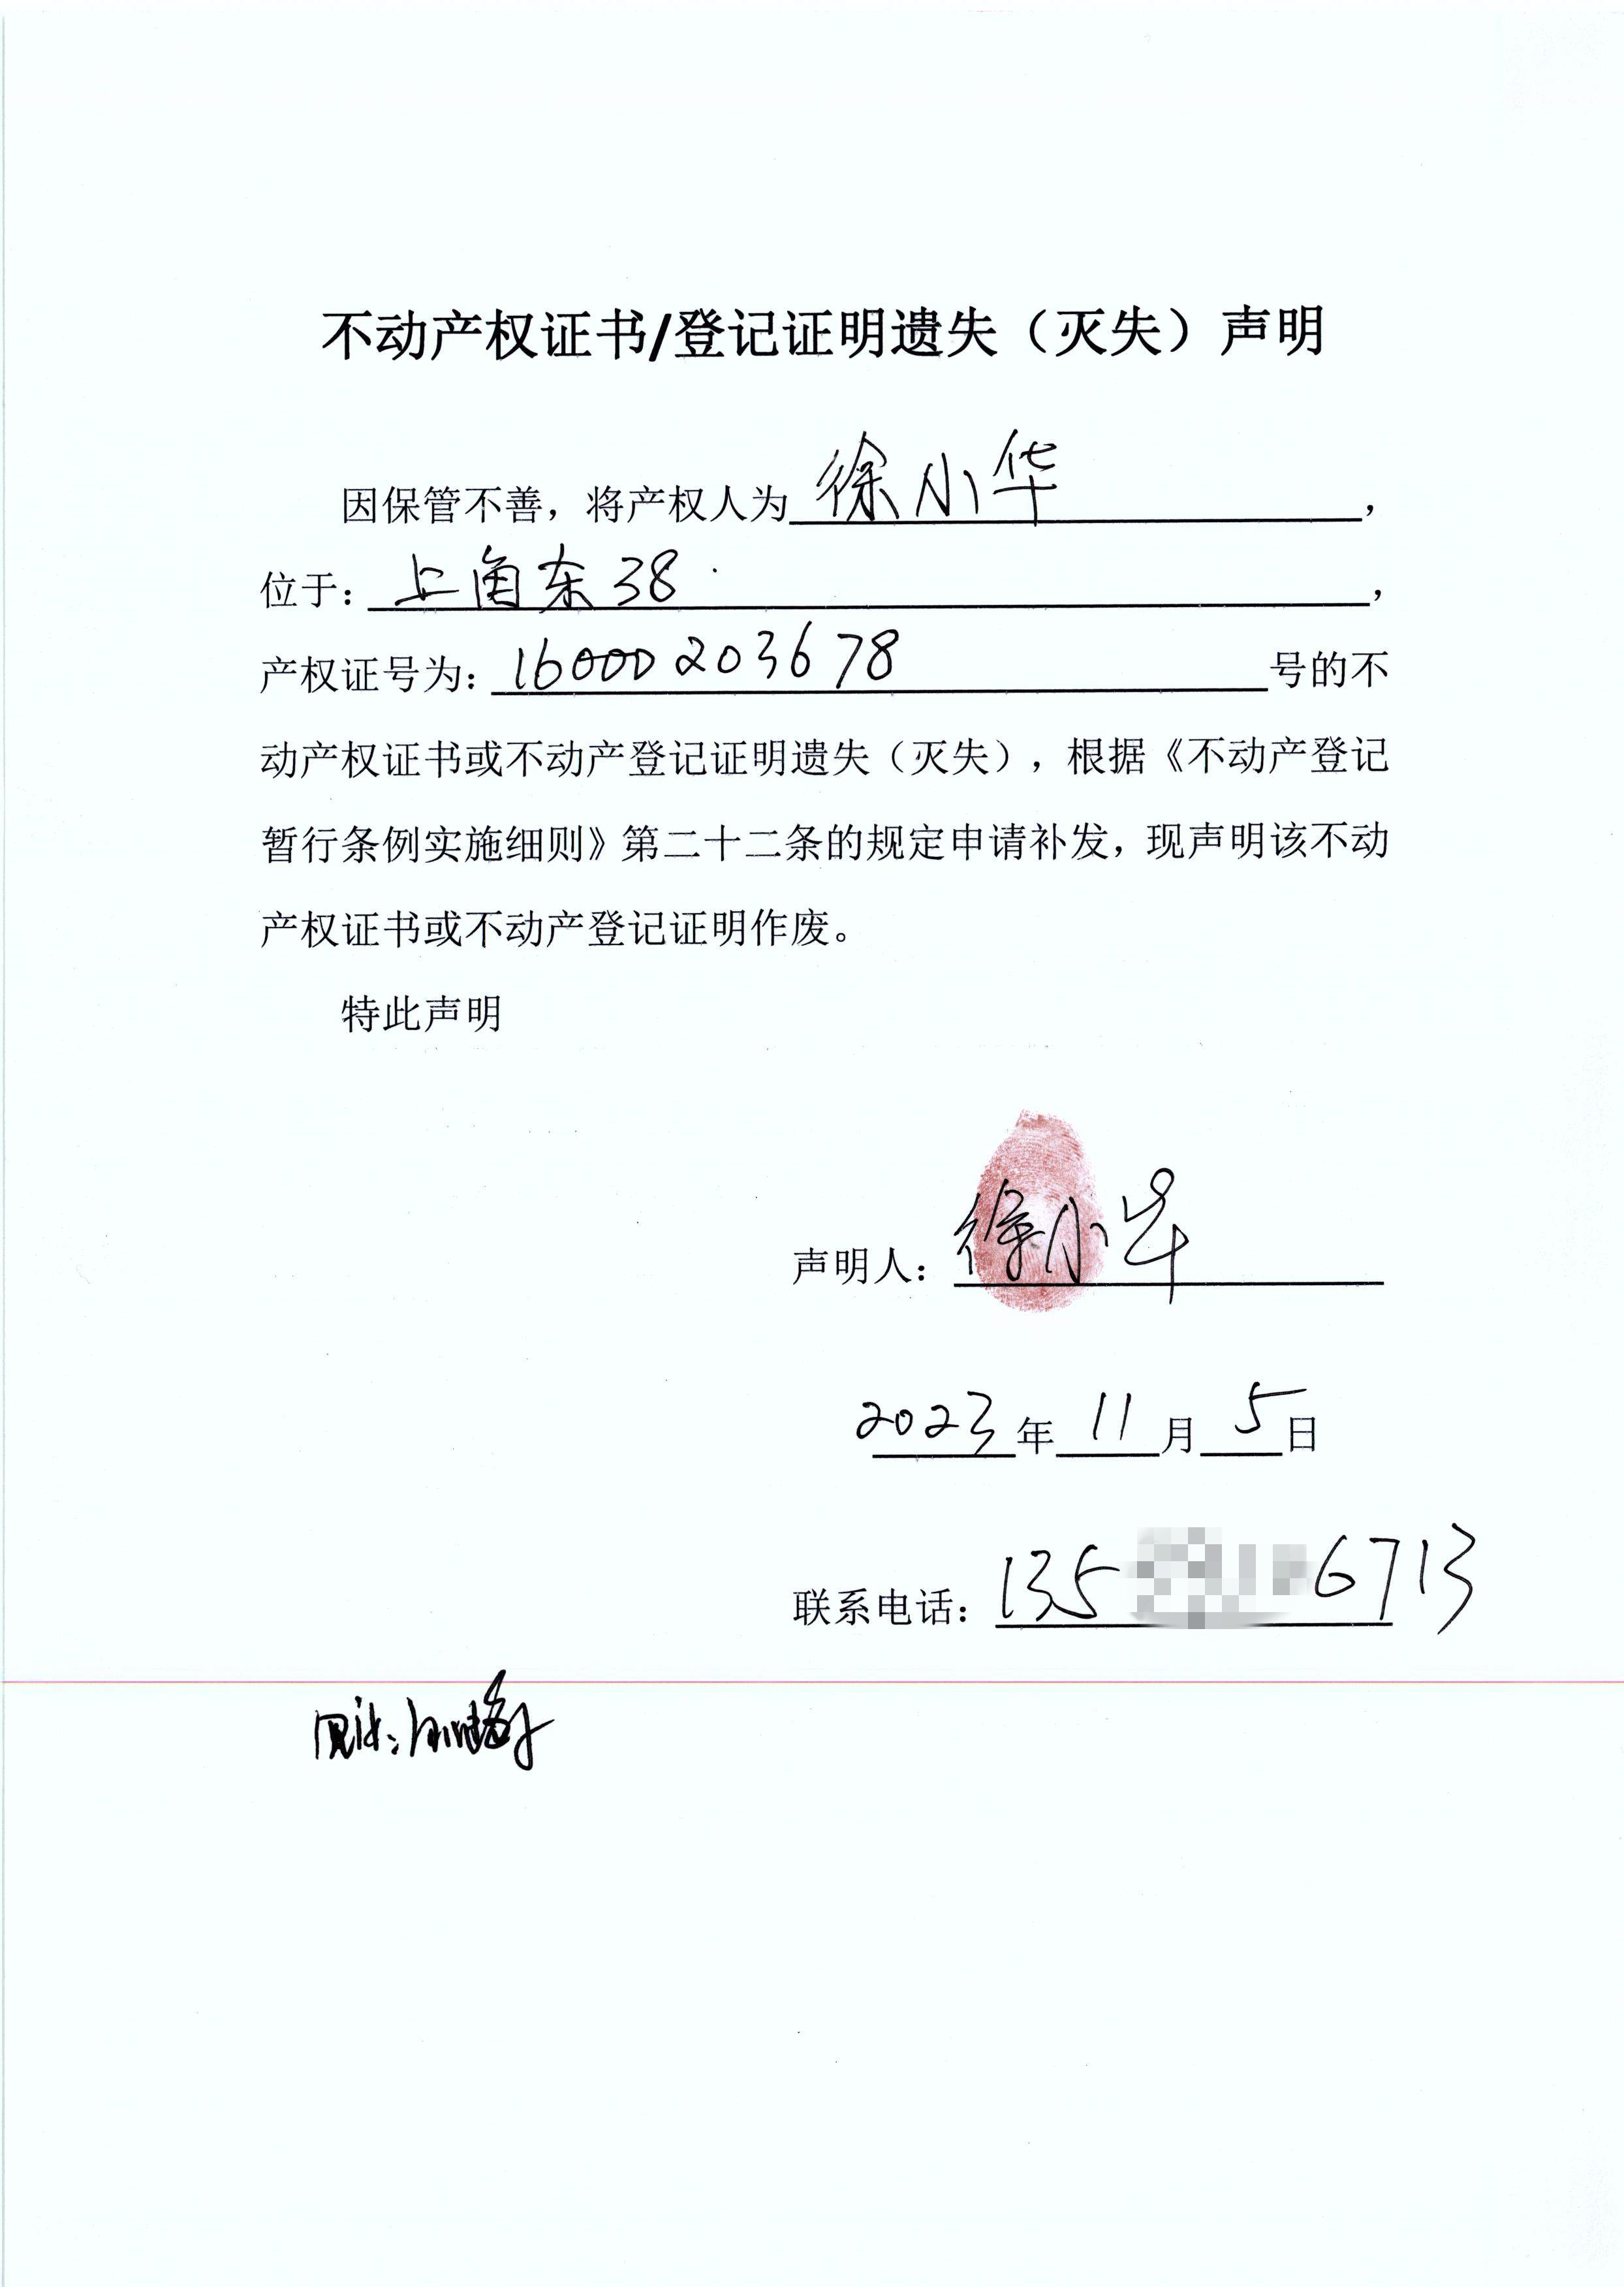 不动产权证书/登记证明遗失（灭失）声明
因保管不善，将产权人为徐小华，
位于：上角东38，
产权证号为：160000203678号的不
动产权证书或不动产登记证明遗失（灭失），根据《不动产登记
暂行条例实施细则》第二十二条的规定申请补发，现声明该不动
产权证书或不动产登记证明作废。
特此声明
声明人：徐小华
2023年11月5日
联系电话：135 6713